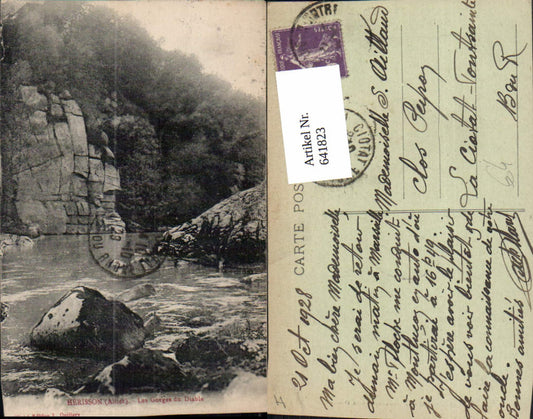 HERISSON (Allier). - Les Gorges du Diable
Artikel Nr.
641823
CARTE POS
Mademoiselle S. Aillaud
Clos Peyron
La Ciotat
B du R
21 Oct 1928
Ma bien chère Mademoiselle
Je serai de retour
demain matin à Marseille
Mr me conduit
à Montluçon en auto d'où
je partirai à 16h 19.
J'espère avoir le plaisir
de vous voir bientôt et de
faire la connaissance de
monde.
Bonnes amitiés